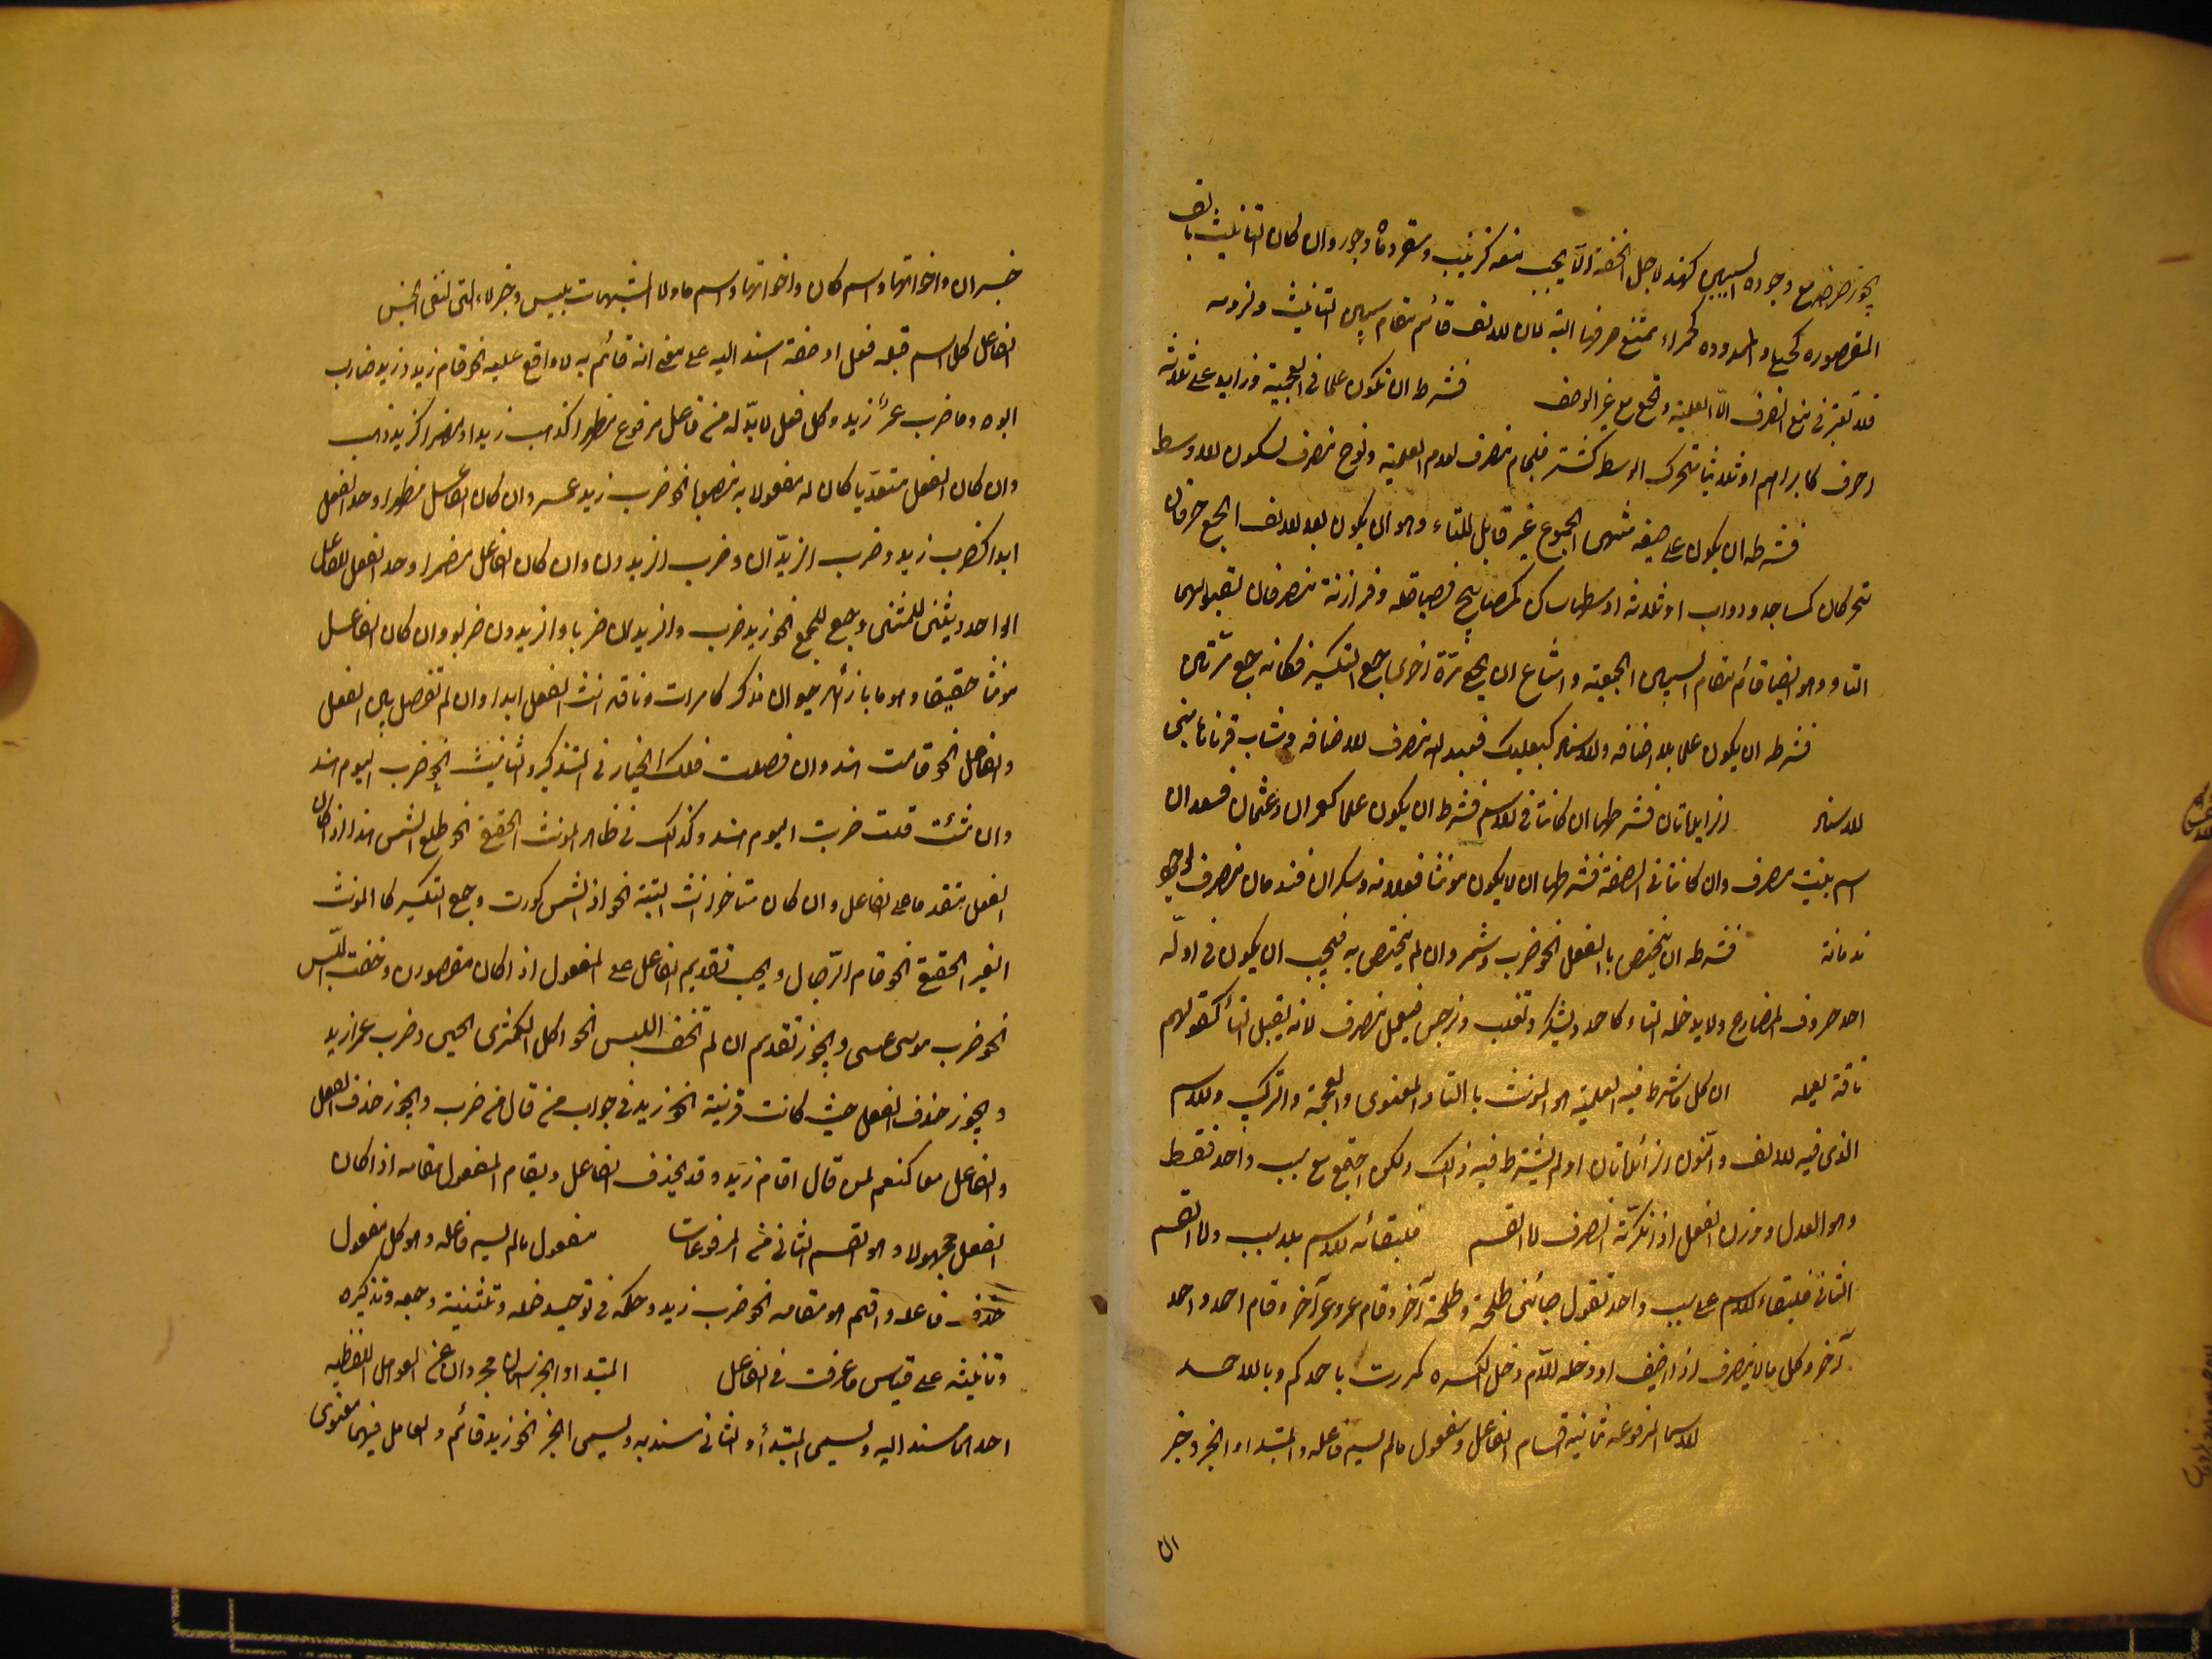 يجوز صرفه مع وجود السببين كهند لاجل الخفة والّا يجب منعه كزينب وسقر وماه وجور وان كان التانيث بالف
المقصورة كحبلى والممدودة كحمراء يمتنع صرفها البتة لان الالف قائم مقام سببين التانيث ولزومه
فلا تعتبر فى منع الصرف الّا العلمية وتجمع مع غير الوصف فشرط ان تكون علما فى العجمية وزايد على ثلاثة
احرف كابراهيم او ثلاثيا متحرك الوسط كشتر فلجام منصرف لعدم العلمية ونوح منصرف لسكون الاوسط
فشرطه ان يكون على صيغة منتهى الجموع غير قابل للتاء وهو ان يكون بعد الالف الجمع حرفان
متحركان كمساجد ودواب او ثلاثة اوسطها ساكن كمصابيح فصياقلة وفرازنة منصرفان لقبولهما
التاء وهو ايضا قائم مقام السببين الجمعية وامتناع ان يجمع مرّة اخرى جمع التكسير فكانه جمع مرّتين
فشرطه ان يكون علما بلا اضافة والاسناد كبعلبك فعبد الله منصرف للاضافة وشاب قرناها مبنى
للاسناد الزايدتان فشرطهما ان كانتا فى الاسم فشرط ان يكون علما كعمران وعثمان فسعدان
اسم بنت منصرف وان كانتا فى الصفة فشرطهما ان لا يكون مونثا فعلانة وسكران فندمان منصرف لوجود
ندمانة فشرطه ان يختص بالفعل نحو ضرب وشمر وان لم يختص به فيجب ان يكون فى اوله
احد حروف المضارع ولا يدخله التاء كاحمد ويشكر وتغلب ونرجس فيعمل منصرف لانه يقبل التاء كقولهم
ناقة يعملة ان كل ما شرط فيه العلمية هو المونث بالتاء والمعنوى والعجمة والتركيب والاسم
الذى فيه الالف والنون الزائدتان او لم يشترط فيه ذلك ولكن اجتمع مع سبب واحد فقط
وهو العدل ووزن الفعل اذا نكرته انصرف لا القسم فلبقائه الاسم بلا سبب ولا القسم
الثانى فلبقاء الاسم على سبب واحد تقول جائنى طلحة وطلحة آخر وقام عمر وعمر آخر وقام احمد واحمد
آخر وكل ما لا ينصرف اذا اضيف او دخله اللام دخل الكسرة كمررت باحمدكم وبالاحمد
الاسماء المرفوعة ثمانية اقسام الفاعل ومفعول ما لم يسم فاعله والمبتداء والخبر وخبر
ان
خبر ان واخواتها واسم كان واخواتها واسم ما ولا المشبهات بليس وخبر لاء التى لنفى الجنس
الفاعل كل اسم قبله فعل او صفة اسند اليه على معنى انه قائم به لا واقع عليه نحو قام زيد وزيد ضارب
ابوه وما ضرب عمرًا زيد وكل فعل لا بدّ له من فاعل مرفوع مظهرا كذهب زيد او مضمرا كزيد ذهب
وان كان الفعل متعدّيا كان له مفعولا به منصوبا نحو ضرب زيد عمرا وان كان الفاعل مظهرا وحد الفعل
ابدا كضرب زيد وضرب الزيدان وضرب الزيدون وان كان الفاعل مضمرا وحد الفعل للفاعل
الواحد ويثنى للمثنى وجمع للجمع نحو زيد ضرب والزيدان ضربا والزيدون ضربوا وان كان الفاعل
مونثا حقيقيا وهو ما بازائه حيوان مذكر كامرات وناقه انث الفعل ابدا وان لم تفصل بين الفعل
والفاعل نحو قامت هند وان فصلت فلك الخيار فى التذكير والتانيث نحو ضرب اليوم هند
وان شئت قلت ضربت اليوم هند وكذلك فى ظاهر المونث الحقيقى نحو طلع الشمس هذا اذا كان
الفعل متقدما على الفاعل وان كان متاخرا انث البتة نحو اذا الشمس كورت وجمع التكسير كالمونث
الغير الحقيقى نحو قام الرّجال ويجب تقديم الفاعل على المفعول اذا كانا مقصورين وخفت اللّبس
نحو ضرب موسى عيسى ويجوز تقديم ان لم تخف اللبس نحو اكل الكمثرى الحيى وضرب عمرا زيد
ويجوز حذف الفعل حيث كانت قرينة نحو زيد فى جواب من قال من ضرب ويجوز حذف الفعل
والفاعل معا كنعم لمن قال اقام زيد وقد يحذف الفاعل ويقام المفعول مقامه اذا كان
الفعل مجهولا وهو القسم الثانى من المرفوعات مفعول ما لم يسم فاعله وهو كل مفعول
حذف فاعله واقيم هو مقامه نحو ضرب زيد وحكمه فى توحيد فعله وتثنيته وجمعه وتذكيره
وتانيثه على قياس ما عرفت فى الفاعل المبتداء والخبر اسمان مجردان عن العوامل اللفظيه
احدهما مسند اليه ويسمى المبتدأ والثانى مسند به ويسمى الخبر نحو زيد قائم والعامل فيهما معنوى